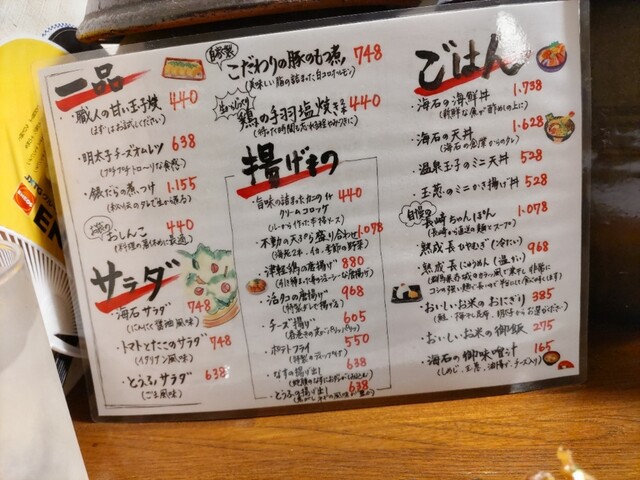 一品
・職人の甘い玉子焼 440
(まずはお試しください)
・明太子チーズオムレツ 638
(プチプチトロ〜リな食感)
・銀だらの煮つけ 1.155
おしんこ 440
サラダ
・海石サラダ 748
(にんにく醤油風味)
・トマトときのこサラダ 748
(イタリアン風味)
・とうふサラダ 638
(ごま風味)
自家製
こだわりの豚のもつ煮 748
鶏の手羽塩焼き 440
揚げもの
・旨味の詰まったカニのクリームコロッケ 440
・不動の天ぷら盛り合わせ 1.078
(海老2本、イカ、季節の野菜)
・津軽鶏の唐揚げ 880
・活タコの唐揚げ 968
・チーズ揚げ 605
(春巻きの皮でパリッパリッ)
・ポテトフライ 550
・なすの揚げ出し 638
・とうふの揚げ出し 638
ごはん
・海石の海鮮丼 1.738
・海石の天丼 1.628
・温泉玉子のミニ天丼 528
・玉葱のミニかき揚げ丼 528
自慢の
長崎ちゃんぽん 1.078
(長崎から直送の麺とスープ)
・熟成
(冷たい) 968
・熟成
(温かい)
・おいしいお米のおにぎり 385
・おいしいお米の御飯 275
・海石の御味噌汁 165
(しめじ、玉葱、油揚げ、チーズ入り)